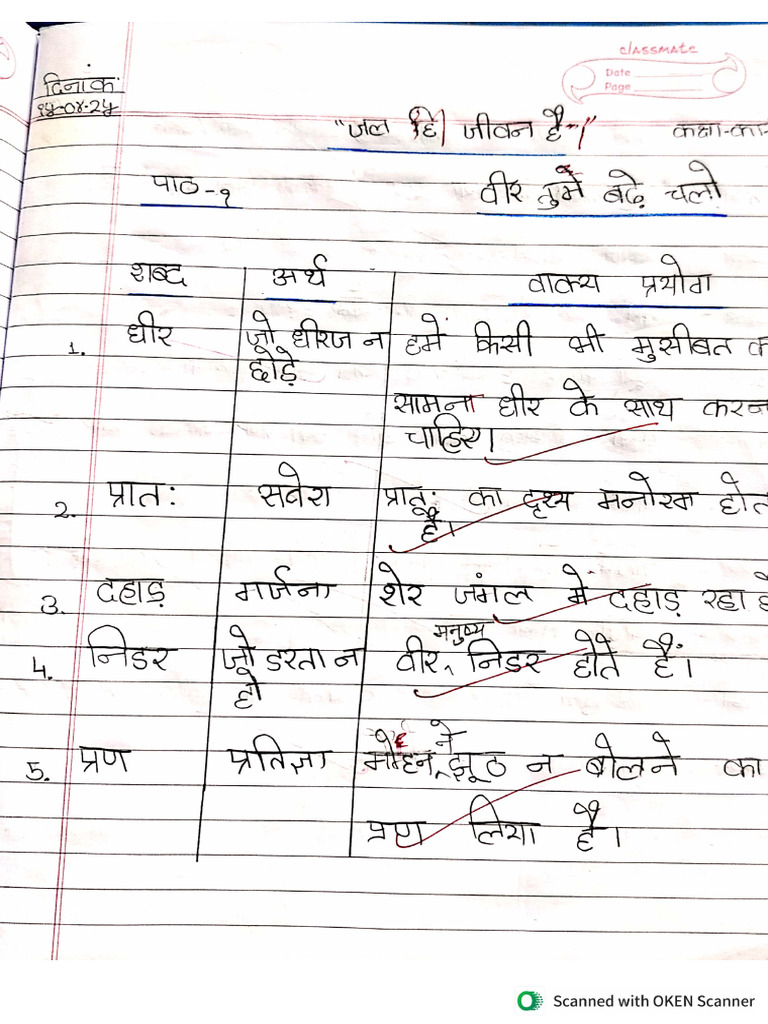 classmate
Date
Page
दिनांक:
१५-०४-२५
"जल हि जीवन है-"
पाठ-१ वीर तुम बढ़े चलो
शब्द अर्थ वाक्य प्रयोग
1. धीर जो धीरज न हमें किसी भी मुसीबत
छोड़े
सामना धीर के साथ
चाहिए।
2. प्रातः सवेरा प्रातः का दृश्य मनोरम
है।
3. दहाड़ गर्जना शेर जंगल में दहाड़ रहा
मनुष्य
4. निडर जो डरता न वीर निडर होते हैं।
हो
ने
5. प्रण प्रतिज्ञा मोहन झूठ न बोलने का
प्रण लिया है।
Scanned with OKEN Scanner